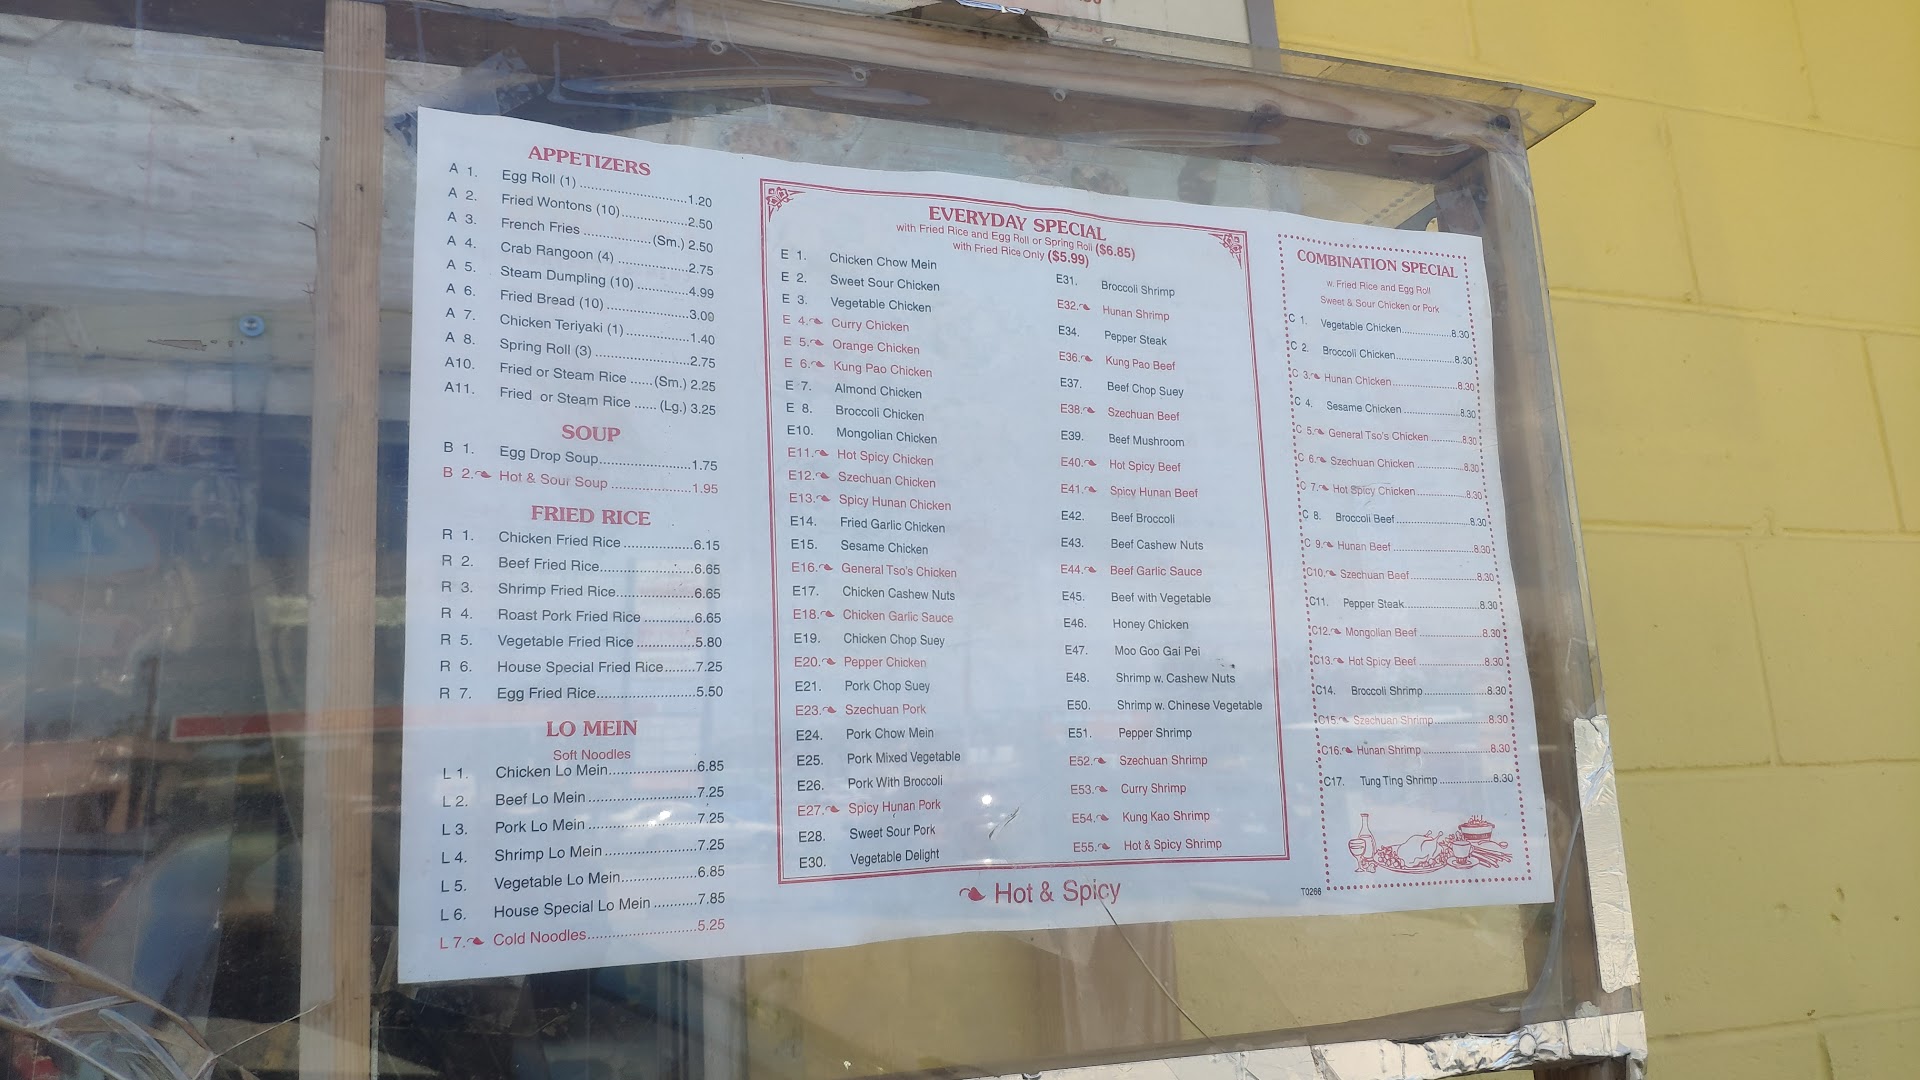 APPETIZERS
A 1. Egg Roll (1) ........................1.20
A 2. Fried Wontons (10)................2.50
A 3. French Fries ................(Sm.) 2.50
A 4. Crab Rangoon (4) .................2.75
A 5. Steam Dumpling (10) .............4.99
A 6. Fried Bread (10) ....................3.00
A 7. Chicken Teriyaki (1)................1.40
A 8. Spring Roll (3) .......................2.75
A10. Fried or Steam Rice ......(Sm.) 2.25
A11. Fried or Steam Rice ...... (Lg.) 3.25
SOUP
B 1. Egg Drop Soup......................1.75
B 2. Hot & Sour Soup ...................1.95
FRIED RICE
R 1. Chicken Fried Rice .................6.15
R 2. Beef Fried Rice......................6.65
R 3. Shrimp Fried Rice..................6.65
R 4. Roast Pork Fried Rice ............6.65
R 5. Vegetable Fried Rice ..............5.80
R 6. House Special Fried Rice.......7.25
R 7. Egg Fried Rice.......................5.50
LO MEIN
Soft Noodles
L 1. Chicken Lo Mein.....................6.85
L 2. Beef Lo Mein ..........................7.25
L 3. Pork Lo Mein ..........................7.25
L 4. Shrimp Lo Mein ......................7.25
L 5. Vegetable Lo Mein..................6.85
L 6. House Special Lo Mein ...........7.85
L 7. Cold Noodles..........................5.25
EVERYDAY SPECIAL
with Fried Rice and Egg Roll or Spring Roll ($6.85)
with Fried Rice Only ($5.99)
E 1. Chicken Chow Mein
E 2. Sweet Sour Chicken
E 3. Vegetable Chicken
E 4. Curry Chicken
E 5. Orange Chicken
E 6. Kung Pao Chicken
E 7. Almond Chicken
E 8. Broccoli Chicken
E10. Mongolian Chicken
E11. Hot Spicy Chicken
E12. Szechuan Chicken
E13. Spicy Hunan Chicken
E14. Fried Garlic Chicken
E15. Sesame Chicken
E16. General Tso's Chicken
E17. Chicken Cashew Nuts
E18. Chicken Garlic Sauce
E19. Chicken Chop Suey
E20. Pepper Chicken
E21. Pork Chop Suey
E23. Szechuan Pork
E24. Pork Chow Mein
E25. Pork Mixed Vegetable
E26. Pork With Broccoli
E27. Spicy Hunan Pork
E28. Sweet Sour Pork
E30. Vegetable Delight
E31. Broccoli Shrimp
E32. Hunan Shrimp
E34. Pepper Steak
E36. Kung Pao Beef
E37. Beef Chop Suey
E38. Szechuan Beef
E39. Beef Mushroom
E40. Hot Spicy Beef
E41. Spicy Hunan Beef
E42. Beef Broccoli
E43. Beef Cashew Nuts
E44. Beef Garlic Sauce
E45. Beef with Vegetable
E46. Honey Chicken
E47. Moo Goo Gai Pei
E48. Shrimp w. Cashew Nuts
E50. Shrimp w. Chinese Vegetable
E51. Pepper Shrimp
E52. Szechuan Shrimp
E53. Curry Shrimp
E54. Kung Kao Shrimp
E55. Hot & Spicy Shrimp
Hot & Spicy
COMBINATION SPECIAL
w. Fried Rice and Egg Roll
Sweet & Sour Chicken or Pork
C 1. Vegetable Chicken..............8.30
C 2. Broccoli Chicken................8.30
C 3. Hunan Chicken ..................8.30
C 4. Sesame Chicken ................8.30
C 5. General Tso's Chicken ..........8.30
C 6. Szechuan Chicken ..............8.30
C 7. Hot Spicy Chicken..............8.30
C 8. Broccoli Beef....................8.30
C 9. Hunan Beef ......................8.30
C10. Szechuan Beef..................8.30
C11. Pepper Steak....................8.30
C12. Mongolian Beef ................8.30
C13. Hot Spicy Beef..................8.30
C14. Broccoli Shrimp................8.30
C15. Szechuan Shrimp..............8.30
C16. Hunan Shrimp ..................8.30
C17. Tung Ting Shrimp ..............8.30
T0266